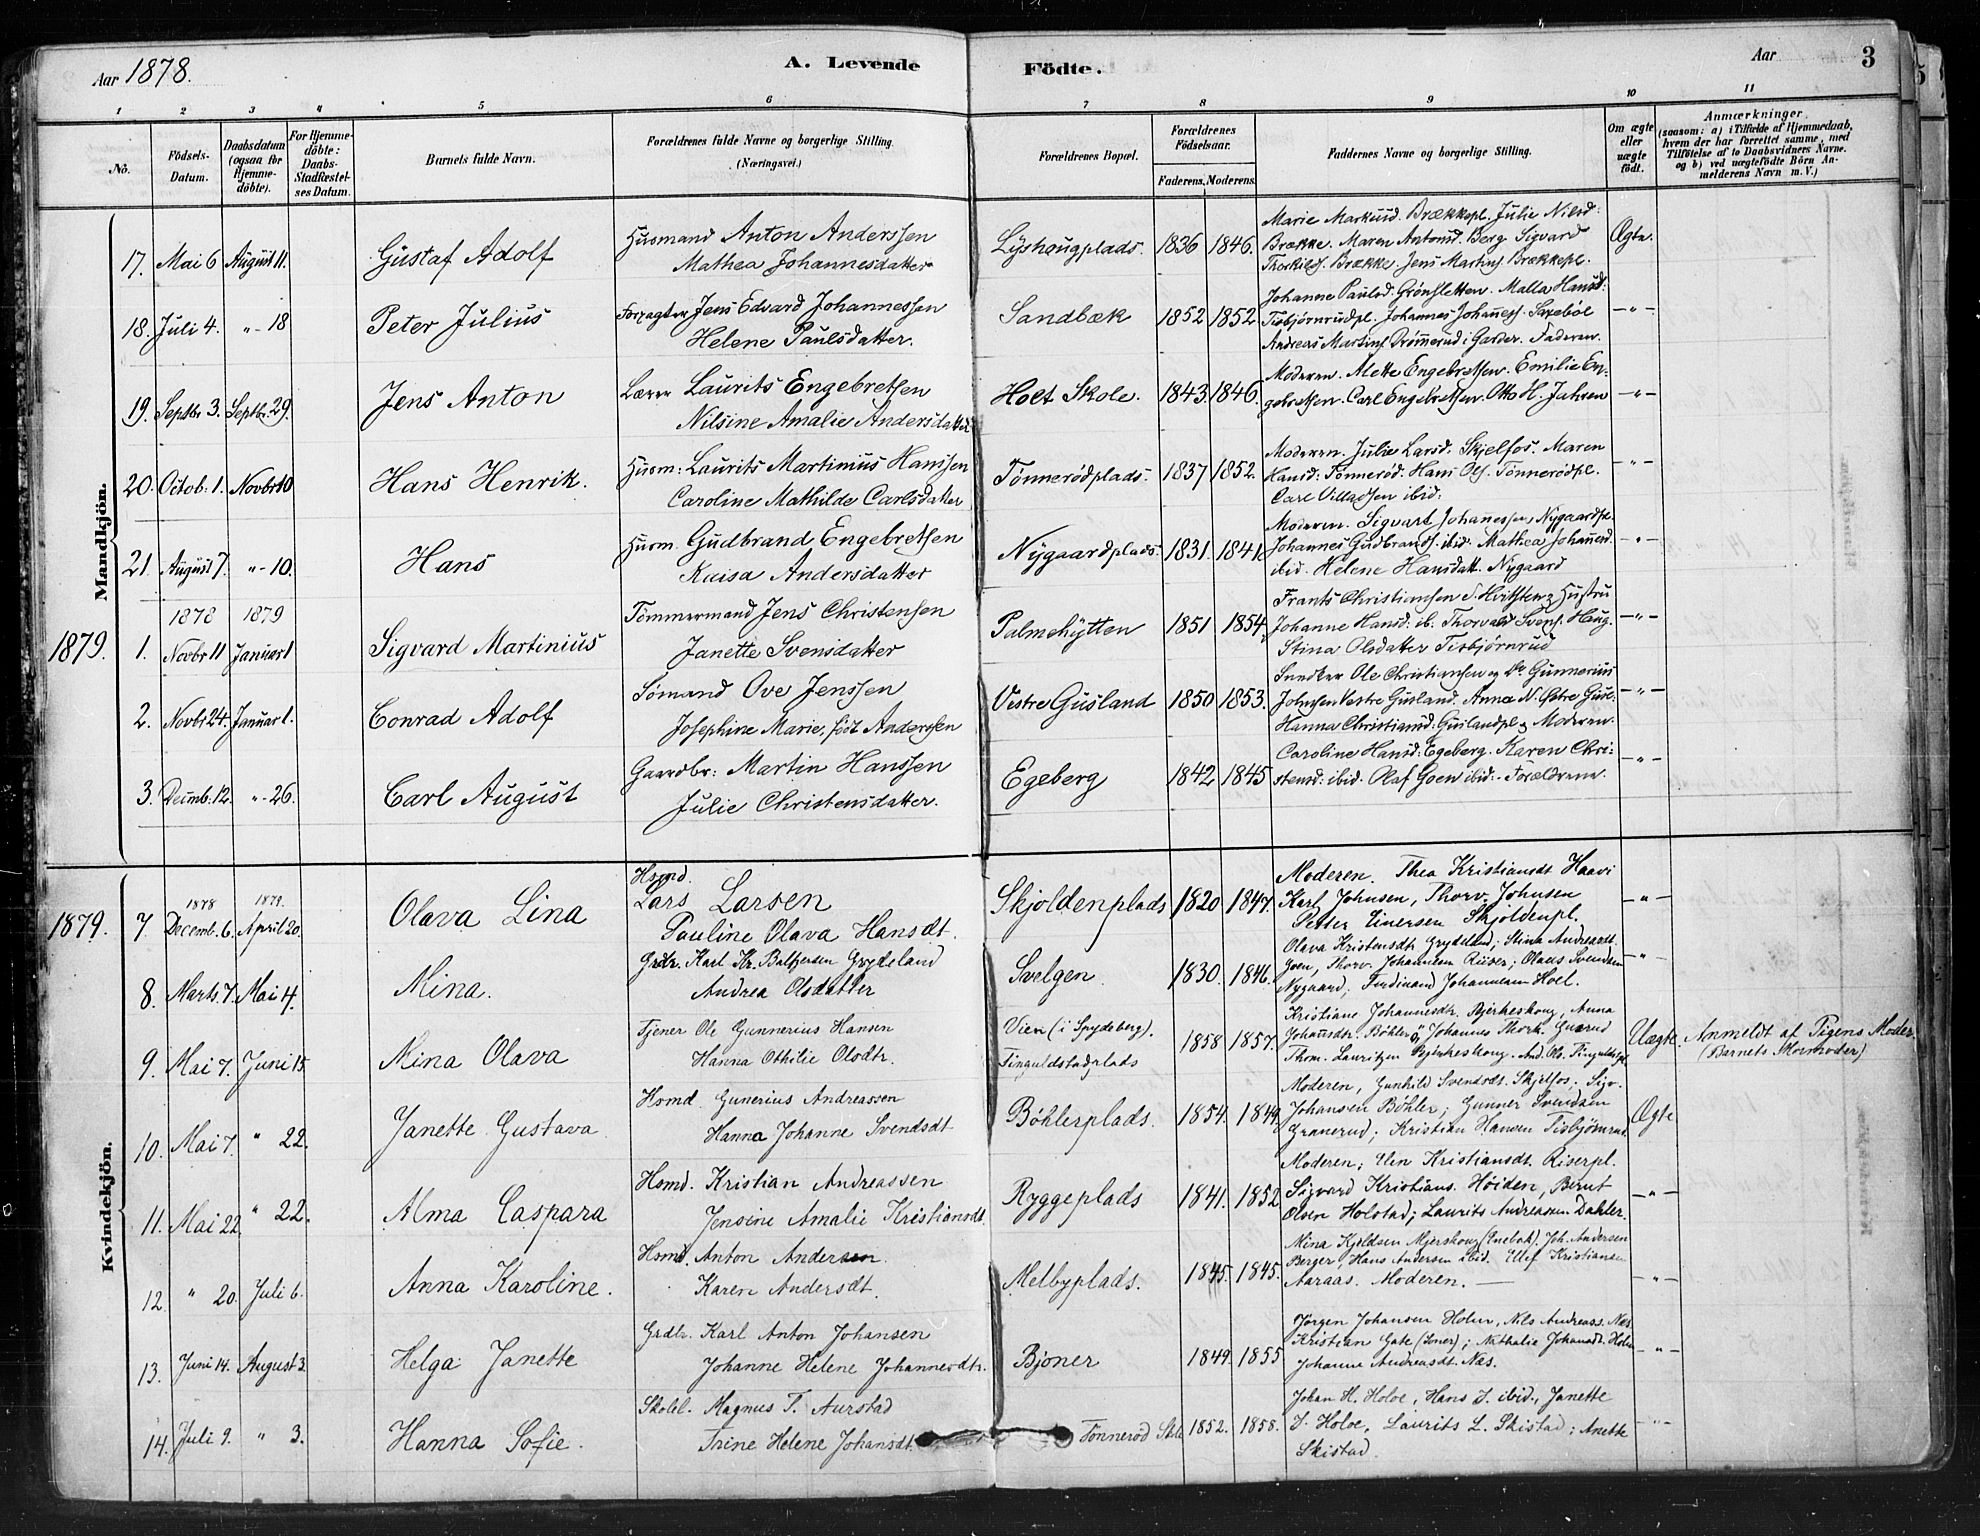 Aar 1878. A. Levende Födte. Aar 3
1 2 3 4 5 6 7 8 9 10 11
No. Födsels-Datum. Daabsdatum (ogsaa for Hjemmedöbte). For Hjemmedöbte: Daabs-Stadfæstelses Datum. Barnets fulde Navn. Forældrenes fulde Navne og borgerlige Stilling. (Næringsvei.) Forældrenes Bopæl. Forældrenes Födselsaar. Faderens. Moderens. Faddernes Navne og borgerlige Stilling. Om ægte eller uægte födt. Anmærkninger. (saasom: a) i Tilfælde af Hjemmedaab, hvem der har forrettet samme, med Tilföielse af to Daabsvidners Navne. og b) ved uægtefödte Börn Anmelderens Navn m. V.)
Mandkjön.
17. Mai 6 August 11. Gustaf Adolf
Husmand Anton Anderssen
Mathea Johannesdatter
Lyshougplads. 1836 1846.
Marie Markusd. Brækkepl. Julie Nilsd:
Brække. Maren Antonsd. Berg Sigvard
Thorkilds. Brække. Jens Martins. Brækkepl.
Ægte.
18. Juli 4. "-18 Peter Julius
Forpagter Jens Edvard Johannessen
Helene Paulsdatter.
Sandbæk 1852 1852
Johanne Paulsd. Grønsletten. Malla Hansd:
Tisbjørnrudpl. Johannes Johanes. Saxebøl
Andreas Martins. Drømmerud i Garder. Faderen.
-"-
19. Septbr 3. Septbr. 29. Jens Anton
Lærer Laurits Engebretsen
Nilsine Amalie Andersdatter
Holt Skole. 1843 1846.
Moderen. Alette Engebretsen. Emilie En-
gebretsen. Carl Engebretsen. Otto H. Jahren
-"-
20. Octob: 1. Novbr 10 Hans Henrik.
Husm: Laurits Martinius Hanssen
Caroline Mathilde Carlsdatter
Tønnerødplads. 1837 1852.
Moderen. Julie Larsd. Skjelfos. Maren
Hansd: Tønnerød. Hans Ols. Tønnerødpl.
Carl Villadsen ibid:
-"-
21. August 7. "-10. Hans
Husm. Gudbrand Engebretsen
Andersdatter
Nygaardplads. 1831. 1841.
Moderen. Sigvart Johanessen, Nygaardpl.
Johannes Gudbrands. ibid: Mathea Johannesd.
ibid. Helene Hansdatt. Nygaard
-"-
1879. 1878 1879
1. Novbr 11 Januar 1 Sigvard Martinius
Tømmermand Jens Christensen
Janette Svensdatter
Palmehytten 1851 1854
Frants Christiansen S. Hvitsten & Hustru
Johanne Hansd. ib. Thorvald Svens. Haug.
Stina Olsdatter Tisbjørnrud
-"-
2. Novbr 24. Januar 1. Conrad Adolf
Sømand Ove Jenssen
Josephine Marie, født Anderssen
Vestre Gusland 1850 1853.
Ole Christiansen og Do Gunnerius
Johnsen Vestre Gusland. Anna N.
Hanna Christiansd: Guslandpl. & Moderen.
-"-
3. Decmb: 12. "-26. Carl August
Gaardbr: Martin Hanssen
Julie Christensdatter.
Egeberg 1842 1845
Caroline Hansd: Egeberg. Karen Chri-
stensd: ibid. Olaf Goen ibid:- Forældrene.
-"-
Kvindekjön.
1879. 1878 1879.
7. Decemb. 6. April 20. Olava Lina
Hsmd.
Lars Larsen
Pauline Olava Hansdt.
Skjoldenplads 1820 1847.
Moderen. Thea Kristiansdt Haavi
Karl Johnsen, Thorv. Johnsen
Petter Einersen Skjoldenpl.
-"-
8. Marts. 7. Mai 4. Mina.
Grdr. Karl Kr. Baltzersen Grydeland
Andrea Olsdatter
Svelgen. 1830. 1846.
Olava Kristensdt. Grydeland; Stina Andreasdt.
Goen, Thorv. Johannesen Riiser; Olaus Svendsen
Nygaard; Ferdinand Johannesen Hoel.
-"-
9. Mai 7. Juni 15. Mina Olava
Tjener Ole Gunnerius Hansen
Hanna Othilie Olsdtr.
Vien (i Spydeberg).
Finguldstadplads
1858 1857.
Kristiane Johannesdtr. Bjerkeskoug, Anna
Johansdtr. Bøhler; Johannes Thork. Guerud
Thom. Lauritzen Bjerkeskoug. And. Ols.
Uægte. Anmeldt af Pigens Moder
(Barnets Mormoder)
10. Mai 7. " 22. Janette Gustava
Hsmd. Gunerius Andreassen
Hanna Johanne Svendsdt
Bøhlerplads. 1854. 1849.
Moderen, Gunhild Svendsdt. Skjelfos; Sigv.
Johansen Bøhler; Gunner Svendsen
Granerud; Kristian Hansen Tisbjørnrud.
Ægte
11. Mai 22. " 22. Alma Caspara
Hsmd. Kristian Andreassen
Jensine Amalie Kristiansdt.
Ryggeplads 1841. 1852
Moderen; Elen Kristiansdt. Riserpl.
Sigvard Kristians. Høiden, Bernt
Olsen Holstad; Laurits Andreassen Dahler.
-"-
12. " 20. Juli 6. Anna Karoline.
Hsmd. Anton Andersen.
Karen Andersdt.
Melbyplads. 1845. 1845.
Mina Kjeldsen Mjerskoug (Enebak), Joh. Andersen
Berger, Hans Andersen ibid. Ulef Kristiansen
Aaraas. Moderen. —
-"-
13. Juni 14. August 3. Helga Janette
Grdbr. Karl Anton Johansen
Johanne Helene Johannesdtr.
Bjoner 1849. 1855
Jørgen Johansen Holm, Nils Andreass. Næs
Kristian Gate (Soner); Nathalie Johansdt. Holm
Johanne Andreasdt. Næs.
-"-
14. Juli 9. " 3. Hanna Sofie.
Skolel. Magnus T. Aurstad
Trine Helene Johansdt.
Tønnerød Skole 1852. 1858.
Johan H. Holoe, Hans J. ibid., Janette
J. Holoe, Laurits L. Skistad; Anette
Skistad.
-"-